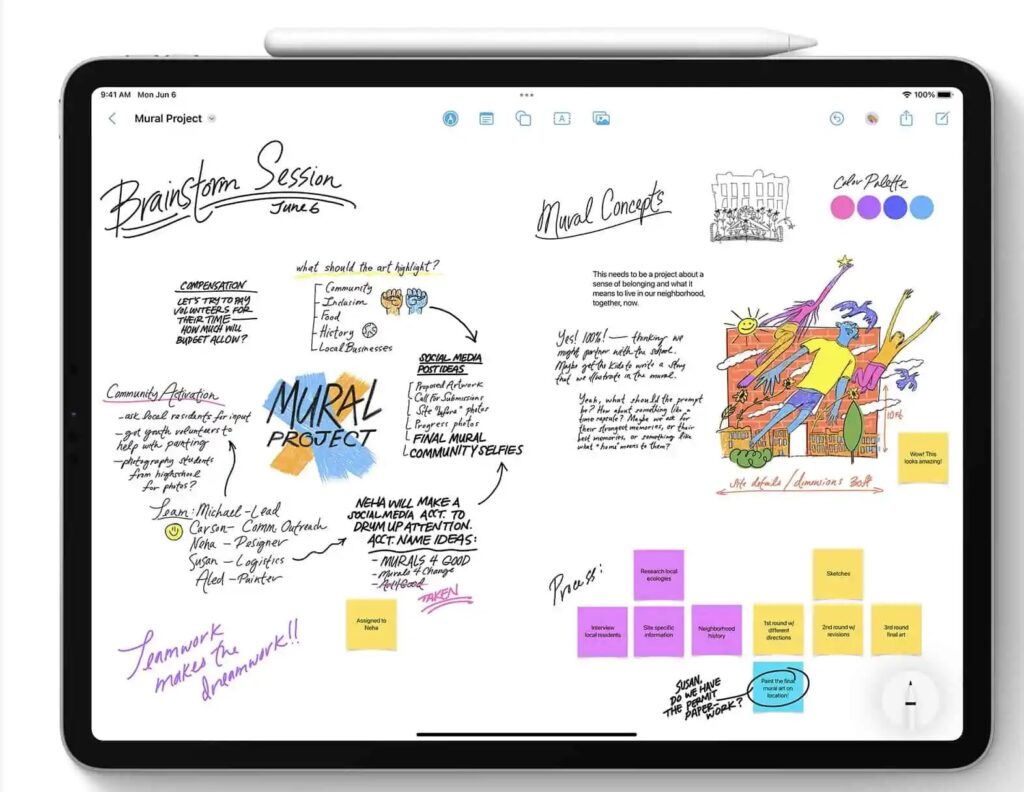 9:41 AM Mon Jun 6
100%
Mural Project
A
Brainstorm Session
June 6
COMPENSATION
LET'S TRY TO PAY
VOLUNTEERS FOR
THEIR TIME —
HOW MUCH WILL
BUDGET ALLOW?
what should the art highlight?
Community
Inclusion
Food
History
Local Businesses
SOCIAL MEDIA
POST IDEAS
Proposed Artwork
Call For Submissions
Site "before" photos
Progress photos
FINAL MURAL
COMMUNITY SELFIES
Community Activation
- ask local residents for input
- get youth volunteers to
help with painting
- photography students
from highschool
for photos?
MURAL
PROJECT
Team: Michael - Lead
Carson - Comm. Outreach
Neha - Designer
Susan - Logistics
Aled - Painter
NEHA WILL MAKE A
SOCIAL MEDIA ACCT. TO
DRUM UP ATTENTION.
ACCT. NAME IDEAS:
- MURALS 4 GOOD
- Murals 4 Change
- Art4Good
TAKEN
Assigned to
Neha
Teamwork
makes the
dreamwork!!
Mural Concepts
Color Palette
This needs to be a project about a
sense of belonging and what it
means to live in our neighborhood,
together, now.
Yes! 100%! — thinking we
might partner with the school.
Maybe get the kids to write a story
that we illustrate in the mural.
Yeah, what should the prompt
be? How about something like a
time capsule? Maybe we ask for
their strongest memories, or their
best memories, or something like
what "home" means to them?
10 ft
Site details / dimensions 30ft
Wow! This
looks amazing!
Process:
Research local
ecologies
Interview
local residents
Site specific
information
Neighborhood
history
Sketches
1st round w/
different
directions
2nd round w/
revisions
3rd round
final art
Paint the final
mural art on
location!
SUSAN,
DO WE HAVE
THE PERMIT
PAPER-
WORK?